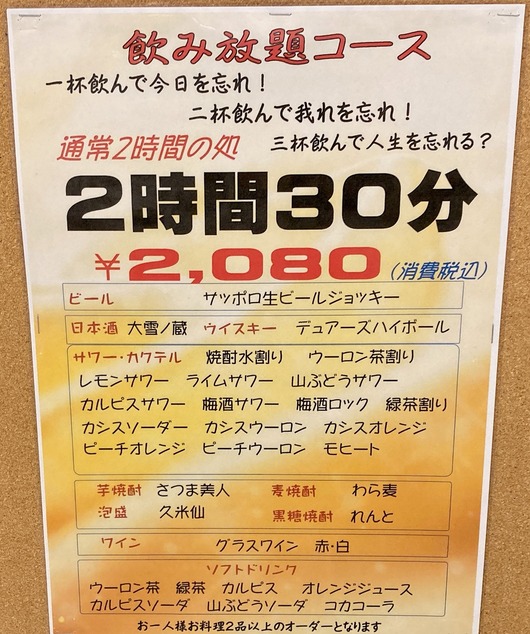 飲み放題コース
一杯飲んで今日を忘れ！
二杯飲んで我れを忘れ！
三杯飲んで人生を忘れる？
通常2時間の処
2時間30分
¥2,080(消費税込)
ビール サッポロ生ビールジョッキー
日本酒 大雪ノ蔵 ウイスキー デュアーズハイボール
サワー・カクテル 焼酎水割り ウーロン茶割り
レモンサワー ライムサワー 山ぶどうサワー
カルピスサワー 梅酒サワー 梅酒ロック 緑茶割り
カシスソーダー カシスウーロン カシスオレンジ
ピーチオレンジ ピーチウーロン モヒート
芋焼酎 さつま美人 麦焼酎 わら麦
泡盛 久米仙 黒糖焼酎 れんと
ワイン グラスワイン 赤・白
ソフトドリンク
ウーロン茶 緑茶 カルピス オレンジジュース
カルピスソーダ 山ぶどうソーダ コカコーラ
お一人様お料理2品以上のオーダーとなります